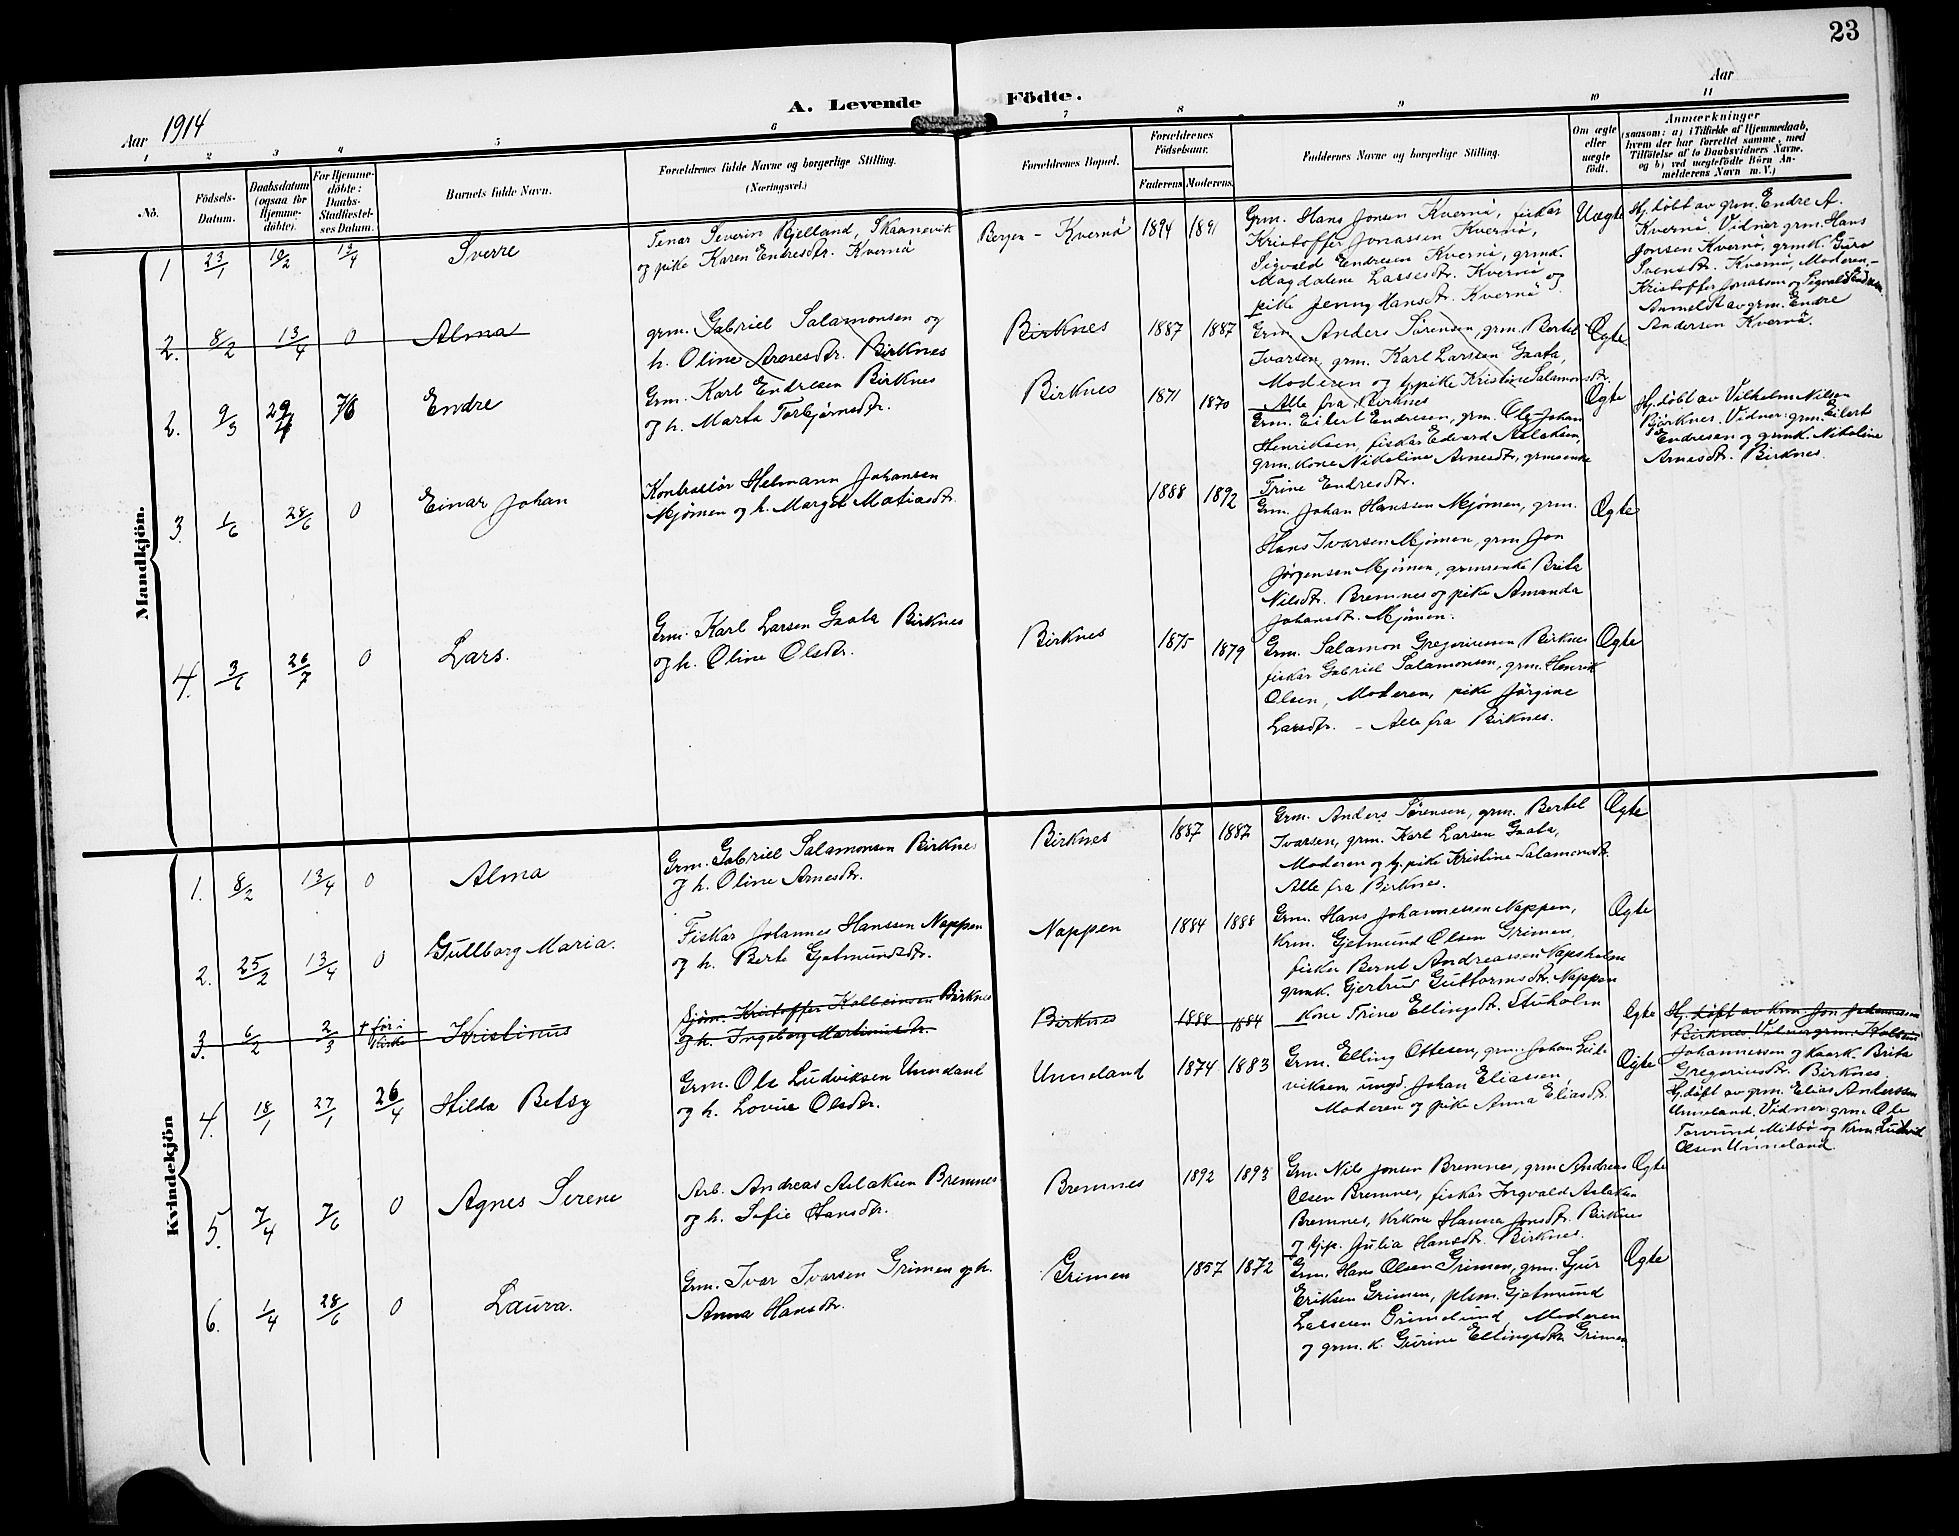 23
Aar 1914
A. Levende Födte.
Aar
1 2 3 4 5 6 7 8 9 10 11
No.
Födsels-
Datum.
Daabsdatum
(ogsaa for
Hjemme-
døbte).
For Hjemme-
döbte:
Daabs-
Stadfæstel-
ses Datum.
Barnets fulde Navn.
Forældrenes fulde Navne og borgerlige Stilling.
(Næringsvei.)
Forældrenes Bopæl.
Forældrenes
Födselsaar.
Faderens Moderens.
Faddernes Navne og borgerlige Stilling.
Om ægte
eller
uægte
födt.
Anmærkninger
(saasom: a) i Tilfælde af Hjemmedaab,
hvem der har forrettet samme, med
Tilföielse af to Daabsvidners Navne.
og b) ved uægtefödte Börn An-
melderens Navn m. V.)
Mandkjön.
1 23/1 10/2 13/4 Sverre
Severin Bjelland, Skaanevik
og pike Karen Endresdtr. Kvernø
Bergen - Kvernø 1894 1891
Grm. Hans Jonsen Kvernø, fisker
Kristoffer Jonassen Kvernø,
Sigvald Endresen Kvernø, grmk.
Magdalene Larsesdtr. Kvernø og
pike Jenny Hansdtr. Kvernø
Uægte
Hj. døbt av grm. Endre A.
Kvernø. Vidner grm. Hans
Jonsen Kvernø, grmk. Guro
Svensdtr. Kvernø, Moderen,
Kristoffer Jonassen og Sigvald Endresen
Anmeldt av grm. Endre
Andersen Kvernø.
2. 8/2 13/4 0 Alma
grm. Gabriel Salamonsen og
h. Oline Arnesdtr. Birknes
Birknes 1887 1887
Grm. Anders Sørensen, grm. Bertel
Ivarsen, grm. Karl Larsen Gaata,
Moderen og tj. pike Kristine Salamonsdtr.
Alle fra Birknes
Ægte
2. 9/3 29/4 7/6 Endre
Grm. Karl Endresen Birknes
og h. Marta Torbjørnsdtr.
Birknes 1871 1870
Grm. Eilert Endresen, grm. Ole Johan
Henriksen, fisker Edvard Aslaksen,
grm. kone Nikoline Arnesdtr., grmsenke
Trine Endresdtr.
Ægte
Hj. døbt av Vilhelm Nilsen
Bjørknes. Vidner: grm. Eilert
Endresen og grmk. Nikoline
Arnesdtr. Birknes.
3. 1/6 28/6 0 Einar Johan
Kontrollør Helmann Johansen
Mjømen og h. Marget Matiasdtr.
1888 1892
Grm. Johan Hanssen Mjømen, grm.
Hans Ivarsen Mjømen, grm Jon
Jørgensen Mjømen, grmsenke Brita
Nilsdtr. Bremnes og pike Amanda
Johansdtr. Mjømen.
Ægte
4. 3/6 26/7 0 Lars.
Grm. Karl Larsen Gaata Birknes
og h. Oline Olsdtr.
Birknes 1875 1879
Grm. Salamon Gregoriussen Birknes
fisker Gabriel Salamonsen, grm. Henrik
Olsen, Moderen, pike Jørgine
Larsdtr. - Alle fra Birknes.
Ægte
Kvindekjön
1. 8/2 13/4 0 Alma
Grm. Gabriel Salamonsen Birknes
og h. Oline Arnesdtr.
Birknes 1887 1887
Grm. Anders Sørensen, grm. Bertel
Ivarsen, grm. Karl Larsen Gaata,
Moderen og tj. pike Kristine Salamonsdtr.
Alle fra Birknes.
Ægte
2. 25/2 13/4 0 Gullborg Maria.
Fisker Johannes Hanssen Nappen
og h. Berta Gjetmundsdtr.
Nappen 1884 1888
Grm. Hans Johannessen Nappen,
Krm. Gjetmund Olsen Grimen,
fisker Bernt Andreassen Napsholm
grmk. Gjertrud Guttormsdtr. Nappen
Kone Trine Ellingsdtr. Stuholm
Ægte
3. 6/2 2/3 Kristinus
Sjøm. Kristoffer Kolbeinsen Birknes
og h. Ingeborg Martinusdtr.
Birknes 1888 1884
Ægte
Hj. døpt av krm. Jon Johannessen
Birknes. Vidner grm. Kolbein
Johannessen og Brita
Gregoriusdtr. Birknes.
4. 18/1 27/1 26/4 Hilda Betsy
Grm. Ole Ludviksen Urneland
og h. Lovise Olsdtr.
Urneland 1874 1883
Grm. Elling Ottesen, grm. Johan Lud-
viksen, ungd. Johan Eliassen,
Moderen og pike Anna Eliasdtr.
Ægte
Hj. døpt av grm. Elias Anderssen
Urneland. Vidner: grm. Ole
Midbø og Krm. Ludvik
Olsen Urneland.
5. 7/4 7/6 0 Agnes Serene
Arb. Andreas Aslaksen Bremnes
og h. Sofie Hansdtr.
Bremnes 1892 1893
Grm. Nils Jonsen Bremnes, grm Andreas
Olsen Bremnes, fisker Ingvald Aslaksen
Bremnes, krkone Hanna Jonsdtr. Birknes
og tjp. Julia Hansdtr. Birknes.
Ægte
6. 1/4 28/6 0 Laura.
Grm. Ivar Ivarsen Grimen og h.
Anna Hansdtr.
Grimen 1857 1872
Grm. Hans Olsen Grimen, grm. Sjur
Eriksen Grimen, plsm. Gjetmund
Larssen Grimelund, Moderen
og grm. k. Gurine Ellingsdtr. Grimen
Ægte